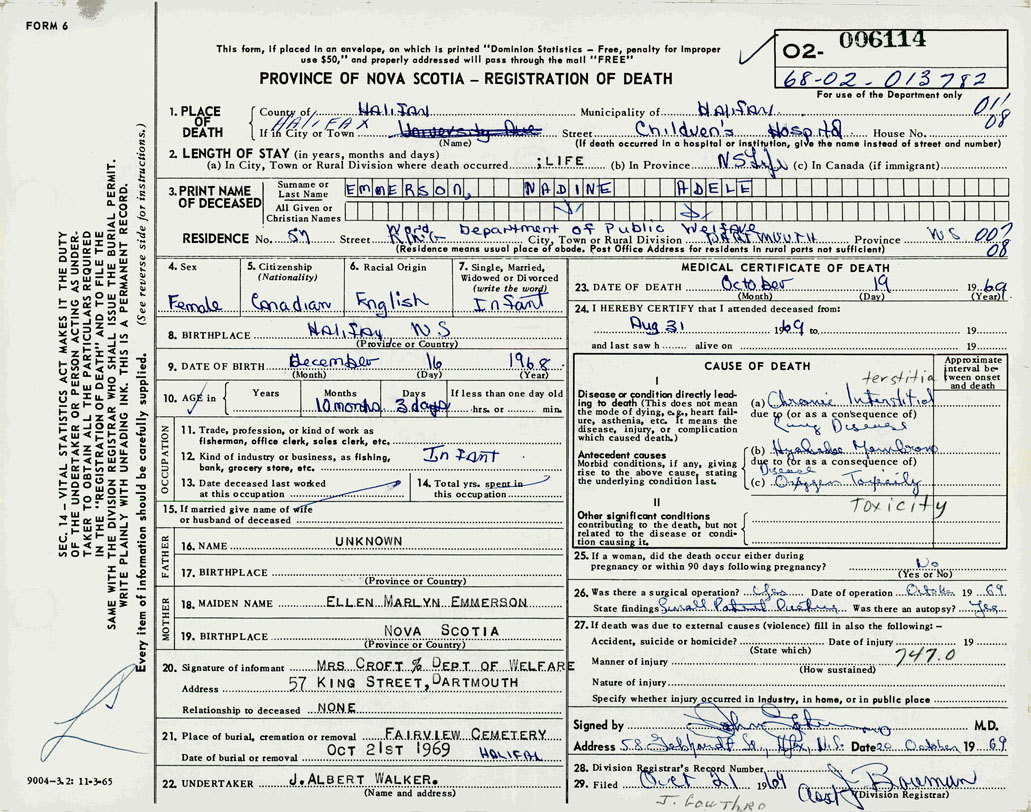 FORM 6
This form, if placed in an envelope, on which is printed "Dominion Statistics – Free, penalty for improper
use $50," and properly addressed will pass through the mail "FREE"
PROVINCE OF NOVA SCOTIA – REGISTRATION OF DEATH
O2- 006114
68-02-013782
For use of the Department only
011
08
1. PLACE OF DEATH
County of HALIFAX Municipality of HALIFAX
HALIFAX
If in City or Town University Ave Street Children's Hospital House No.
(Name) (If death occurred in a hospital or institution, give the name instead of street and number)
2. LENGTH OF STAY (in years, months and days)
(a) In City, Town or Rural Division where death occurred ;LIFE (b) In Province NS Life (c) In Canada (if immigrant)
3. PRINT NAME OF DECEASED
Surname or Last Name EMMERSON, NADINE ADELE
All Given or Christian Names
Ward Department of Public Welfare
RESIDENCE No. 57 Street KING City, Town or Rural Division DARTMOUTH Province NS 007
08
(Residence means usual place of abode. Post Office Address for residents in rural parts not sufficient)
4. Sex Female
5. Citizenship (Nationality) Canadian
6. Racial Origin English
7. Single, Married, Widowed or Divorced (write the word) Infant
8. BIRTHPLACE HALIFAX NS
(Province or Country)
9. DATE OF BIRTH December 16 1968
(Month) (Day) (Year)
10. AGE in Years Months Days If less than one day old
10 months 3 days hrs. or min.
OCCUPATION
11. Trade, profession, or kind of work as fisherman, office clerk, sales clerk, etc.
12. Kind of industry or business, as fishing, bank, grocery store, etc. Infant
13. Date deceased last worked at this occupation
14. Total yrs. spent in this occupation
15. If married give name of wife or husband of deceased
FATHER
16. NAME UNKNOWN
17. BIRTHPLACE
(Province or Country)
MOTHER
18. MAIDEN NAME ELLEN MARLYN EMMERSON
19. BIRTHPLACE NOVA SCOTIA
(Province or Country)
20. Signature of informant MRS CROFT % DEPT OF WELFARE
Address 57 KING STREET, DARTMOUTH
Relationship to deceased NONE
21. Place of burial, cremation or removal FAIRVIEW CEMETERY
Date of burial or removal OCT 21ST 1969 HALIFAX
22. UNDERTAKER J. ALBERT WALKER.
(Name and address)
MEDICAL CERTIFICATE OF DEATH
23. DATE OF DEATH October 19 1969
(Month) (Day) (Year)
24. I HEREBY CERTIFY that I attended deceased from:
Aug 31 1969 to 19
and last saw h alive on 19
CAUSE OF DEATH
Approximate interval between onset and death
I
terstitia
Disease or condition directly leading to death (This does not mean the mode of dying, e.g., heart failure, asthenia, etc. It means the disease, injury, or complication which caused death.)
(a) Chronic Interstitial
due to (or as a consequence of)
Lung Disease
Antecedent causes
Morbid conditions, if any, giving rise to the above cause, stating the underlying condition last.
(b) Hyaline Membrane
due to (or as a consequence of)
Disease
(c) Oxygen Toxicity
Toxicity
II
Other significant conditions contributing to the death, but not related to the disease or condition causing it.
25. If a woman, did the death occur either during pregnancy or within 90 days following pregnancy? No
(Yes or No)
26. Was there a surgical operation? Yes Date of operation October 1969
State findings Small Patent Ductus Was there an autopsy? Yes
27. If death was due to external causes (violence) fill in also the following: –
Accident, suicide or homicide? Date of injury 19
(State which)
747.0
Manner of injury
(How sustained)
Nature of injury
Specify whether injury occurred in industry, in home, or in public place
Signed by M.D.
Address Hfx, N.S. Date 20 October 1969
28. Division Registrar's Record Number
29. Filed Oct 21 1969 Bowman
(Division Registrar)
SEC. 14 – VITAL STATISTICS ACT MAKES IT THE DUTY
OF THE UNDERTAKER OR PERSON ACTING AS UNDER-
TAKER TO OBTAIN ALL THE PARTICULARS REQUIRED
IN THE "REGISTRATION OF DEATH" AND TO FILE THE
SAME WITH THE DIVISION REGISTRAR WHO SHALL ISSUE THE BURIAL PERMIT.
WRITE PLAINLY WITH UNFADING INK. THIS IS A PERMANENT RECORD.
Every item of information should be carefully supplied. (See reverse side for instructions.)
9004-3.2: 11-3-65